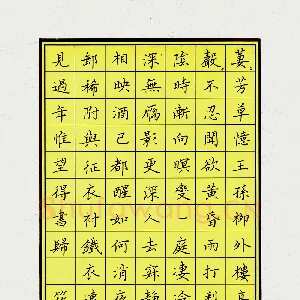 萋〻芳草憶王孫柳外樓高
聲〻不忍聞欲黃昏雨打梨
陰時漸向暝變一庭淒冷
深無雁影更深人去寂靜
相映酒已都醒如何消夜
郵稀附與征衣襯鐵衣遠
見過年惟望得書歸